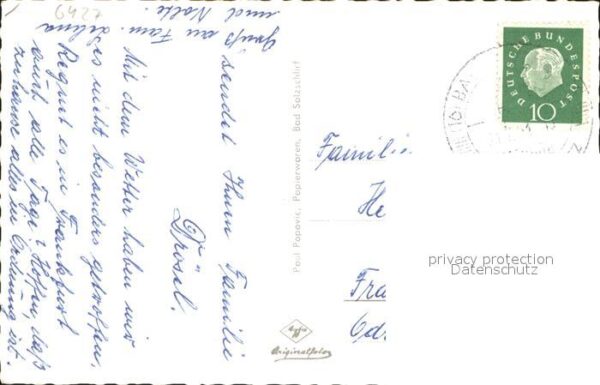 6427
Gruß an Fam.
und Nolte
sendet Ihnen Familie
Drösel.
Mit dem Wetter haben wir
es nicht besonders getroffen.
Regnet es in Frankfurt
auch alle Tage? Hoffen, daß
zuhause alles in Ordnung ist.
Paul Popovic, Papierwaren, Bad Salzschlirf
Agfa
Originalfoto
DEUTSCHE BUNDESPOST
10
Familie
He
Fra
privacy protection
Datenschutz